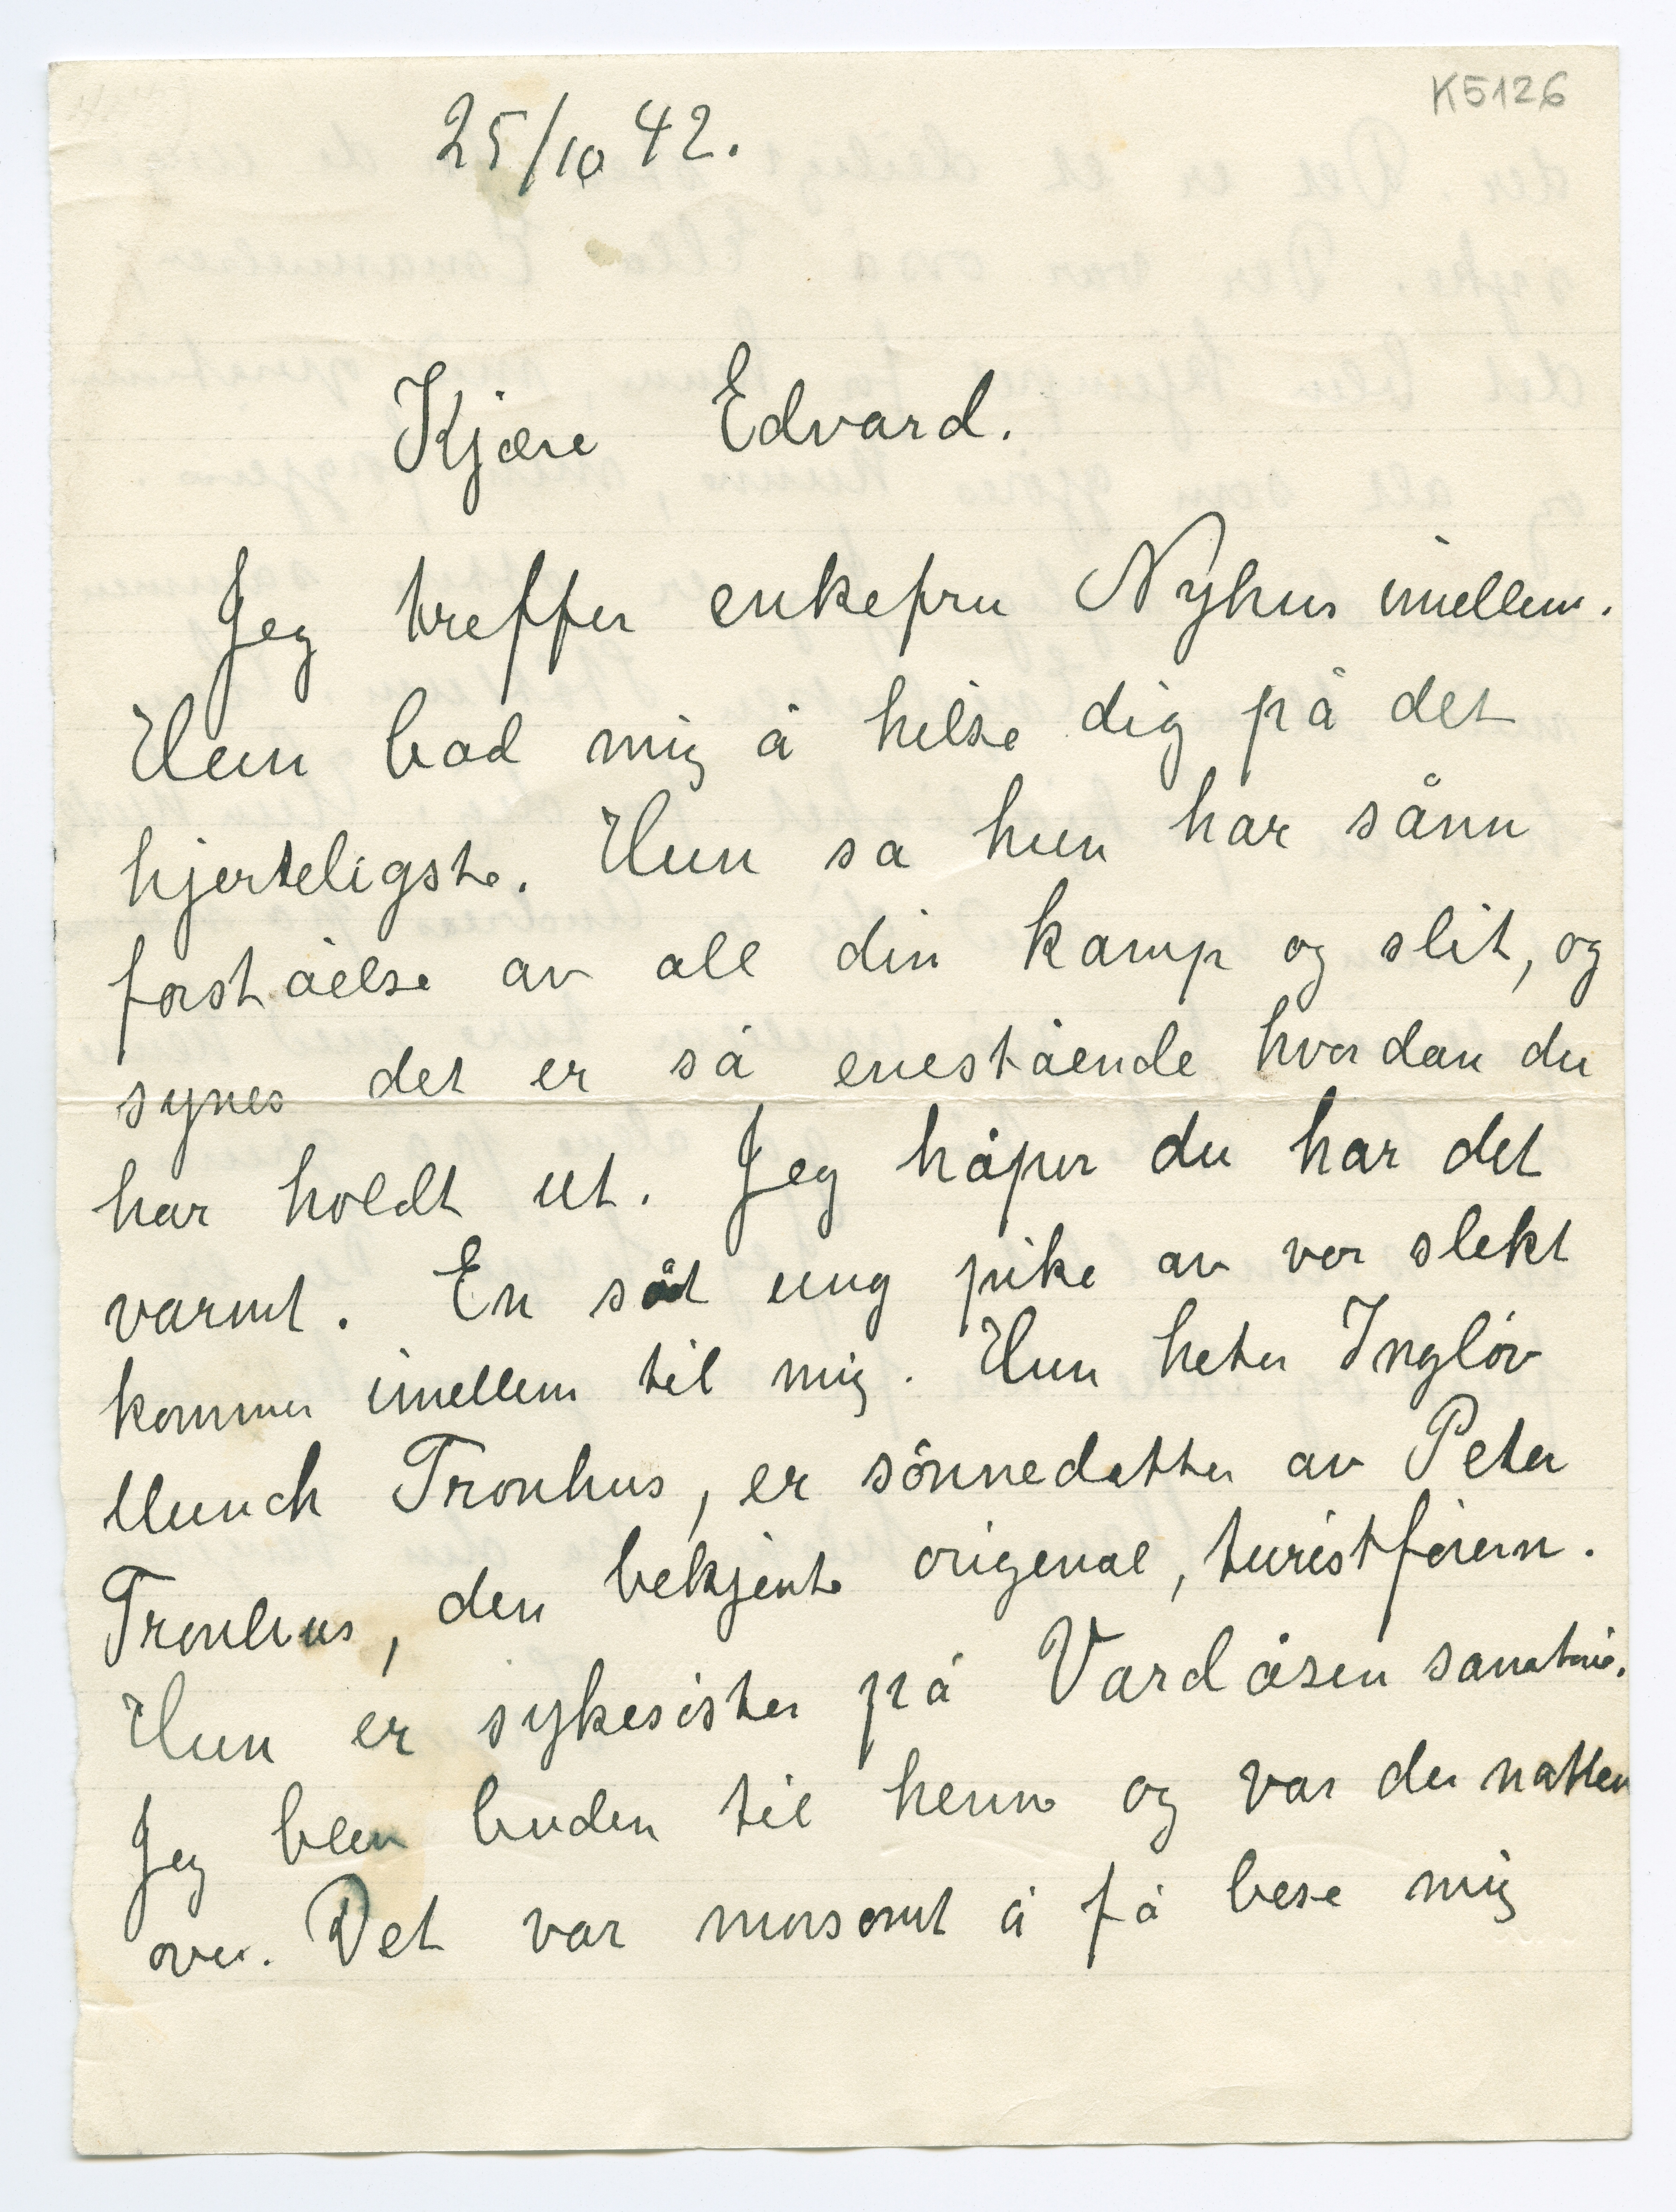 K5126
25/10 42.
Kjære Edvard.
Jeg treffer enkefru Nyhus imellem.
Hun bad mig å hilse dig på det
hjerteligste. Hun sa hun har sånn
forståelse av all din kamp og slit, og
synes det er så enestående hvordan du
har holdt ut. Jeg håper du har det
varmt. En søt ung pike av vor slekt
kommer imellem til mig. Hun heter Ingløv
Munch Tronhus, er sönnedatter av Peter
Tronhus, den bekjente original, turistføreren.
Hun er sykesister på Vardåsen sanatorie.
Jeg blev buden til henne og var der natten
over. Det var morsomt å få bese mig